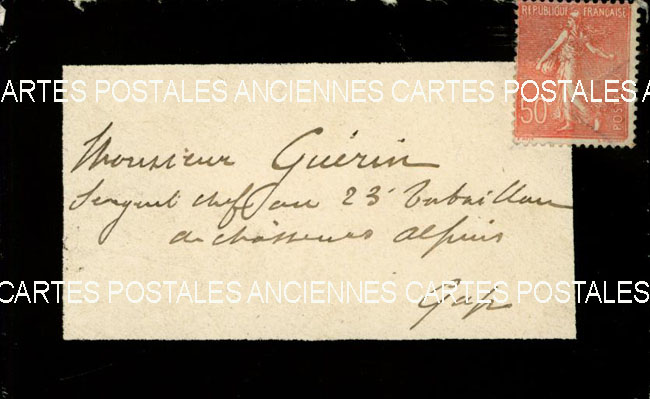 RÉPUBLIQUE FRANÇAISE
50
POSTES
CARTES POSTALES ANCIENNES CARTES POSTALES A
Monsieur Guérin
Sergent chef au 23e bataillon
de chasseurs alpins
CARTES POSTALES ANCIENNES CARTES POSTALES
Gap